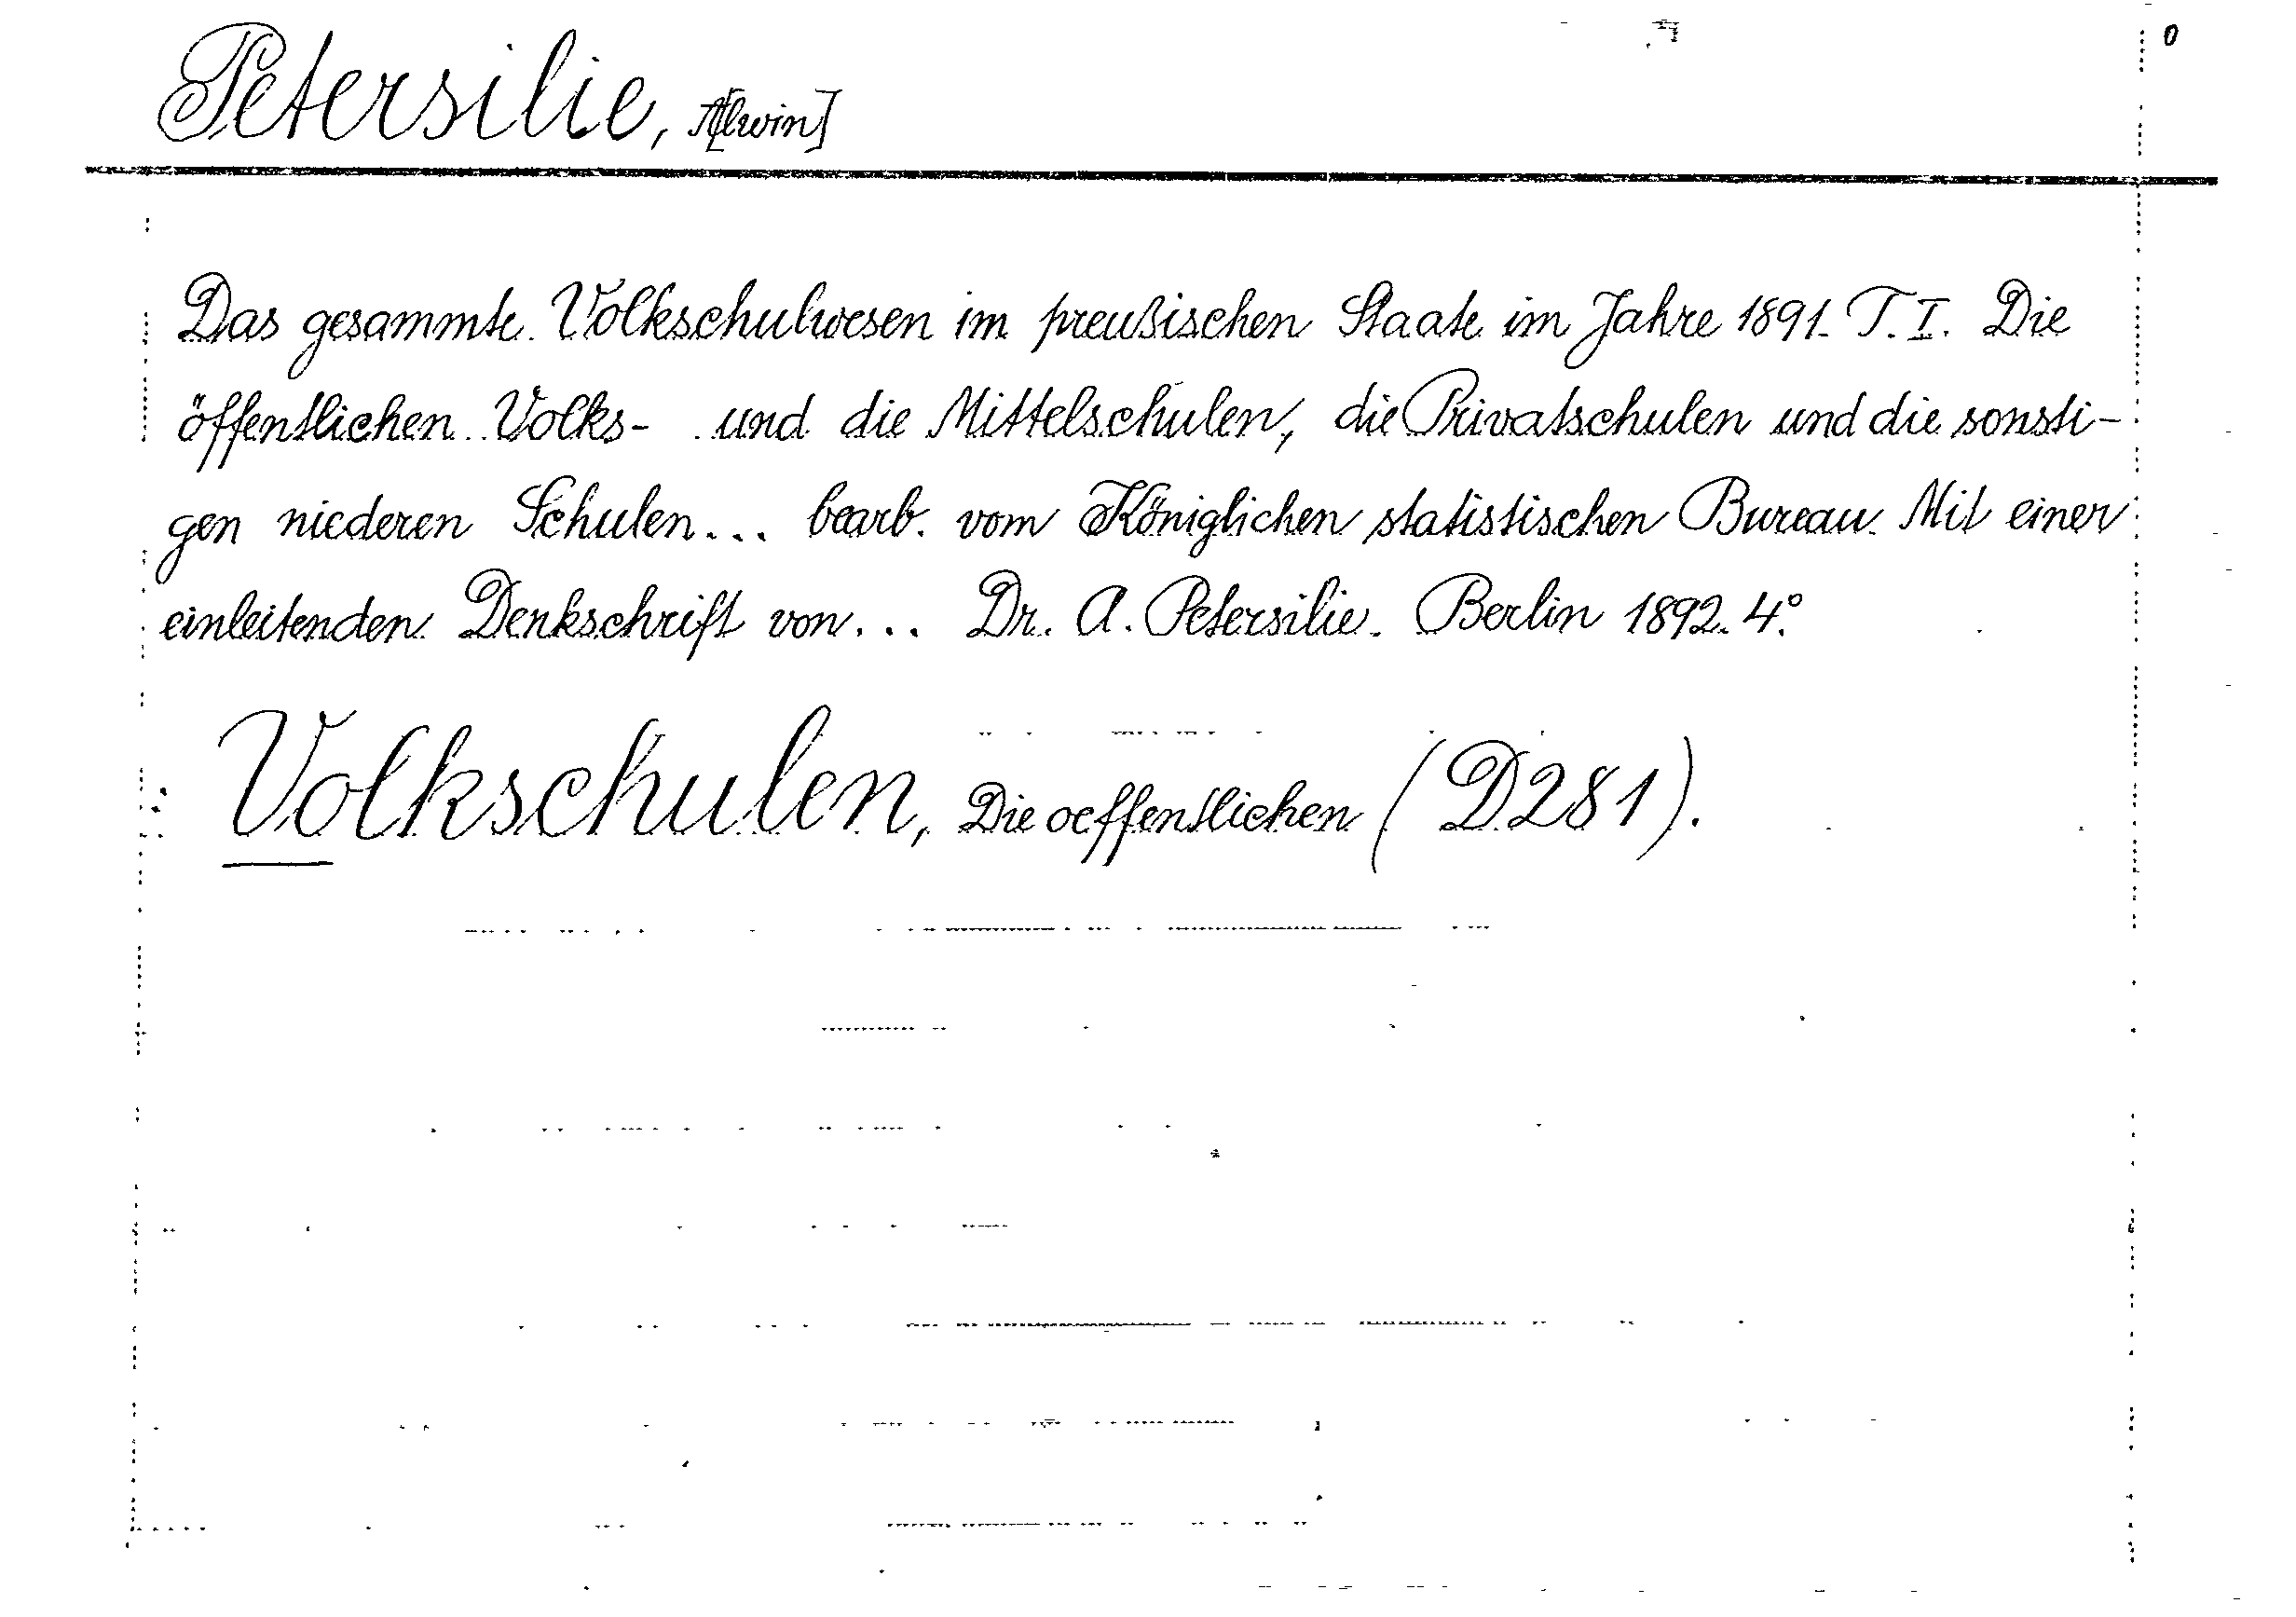 0
Petersilie, A[lwin]
Das gesammte Volkschulwesen im preußischen Staate im Jahre 1891. T. I. Die
öffentlichen Volks- und die Mittelschulen, die Privatschulen und die sonsti-
gen niederen Schulen... bearb. vom Königlichen statistischen Bureau. Mit einer
einleitenden Denkschrift von... Dr. A. Petersilie. Berlin 1892. 4°.
Volkschulen, Die oeffentlichen (D281).